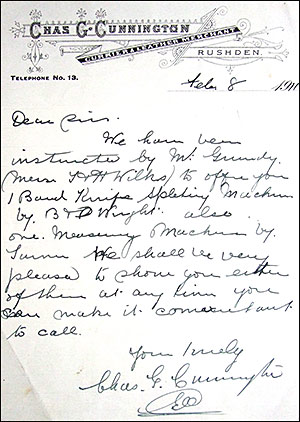 CHAS G. CUNNINGTON
CURRIER & LEATHER MERCHANT
RUSHDEN.
TELEPHONE No. 13.
Feb 8 1911
Dear Sirs.
We have been
instructed by Mr. Grundy
(Messrs H W Wilks) to offer you
1 Band Knife Spliting Machine
by B & D Wright. also
one Measuring Machine by
Turner We shall be very
pleased to show you either
of them at any time you
can make it convenient
to call.
Yours truly
Chas. G. Cunnington